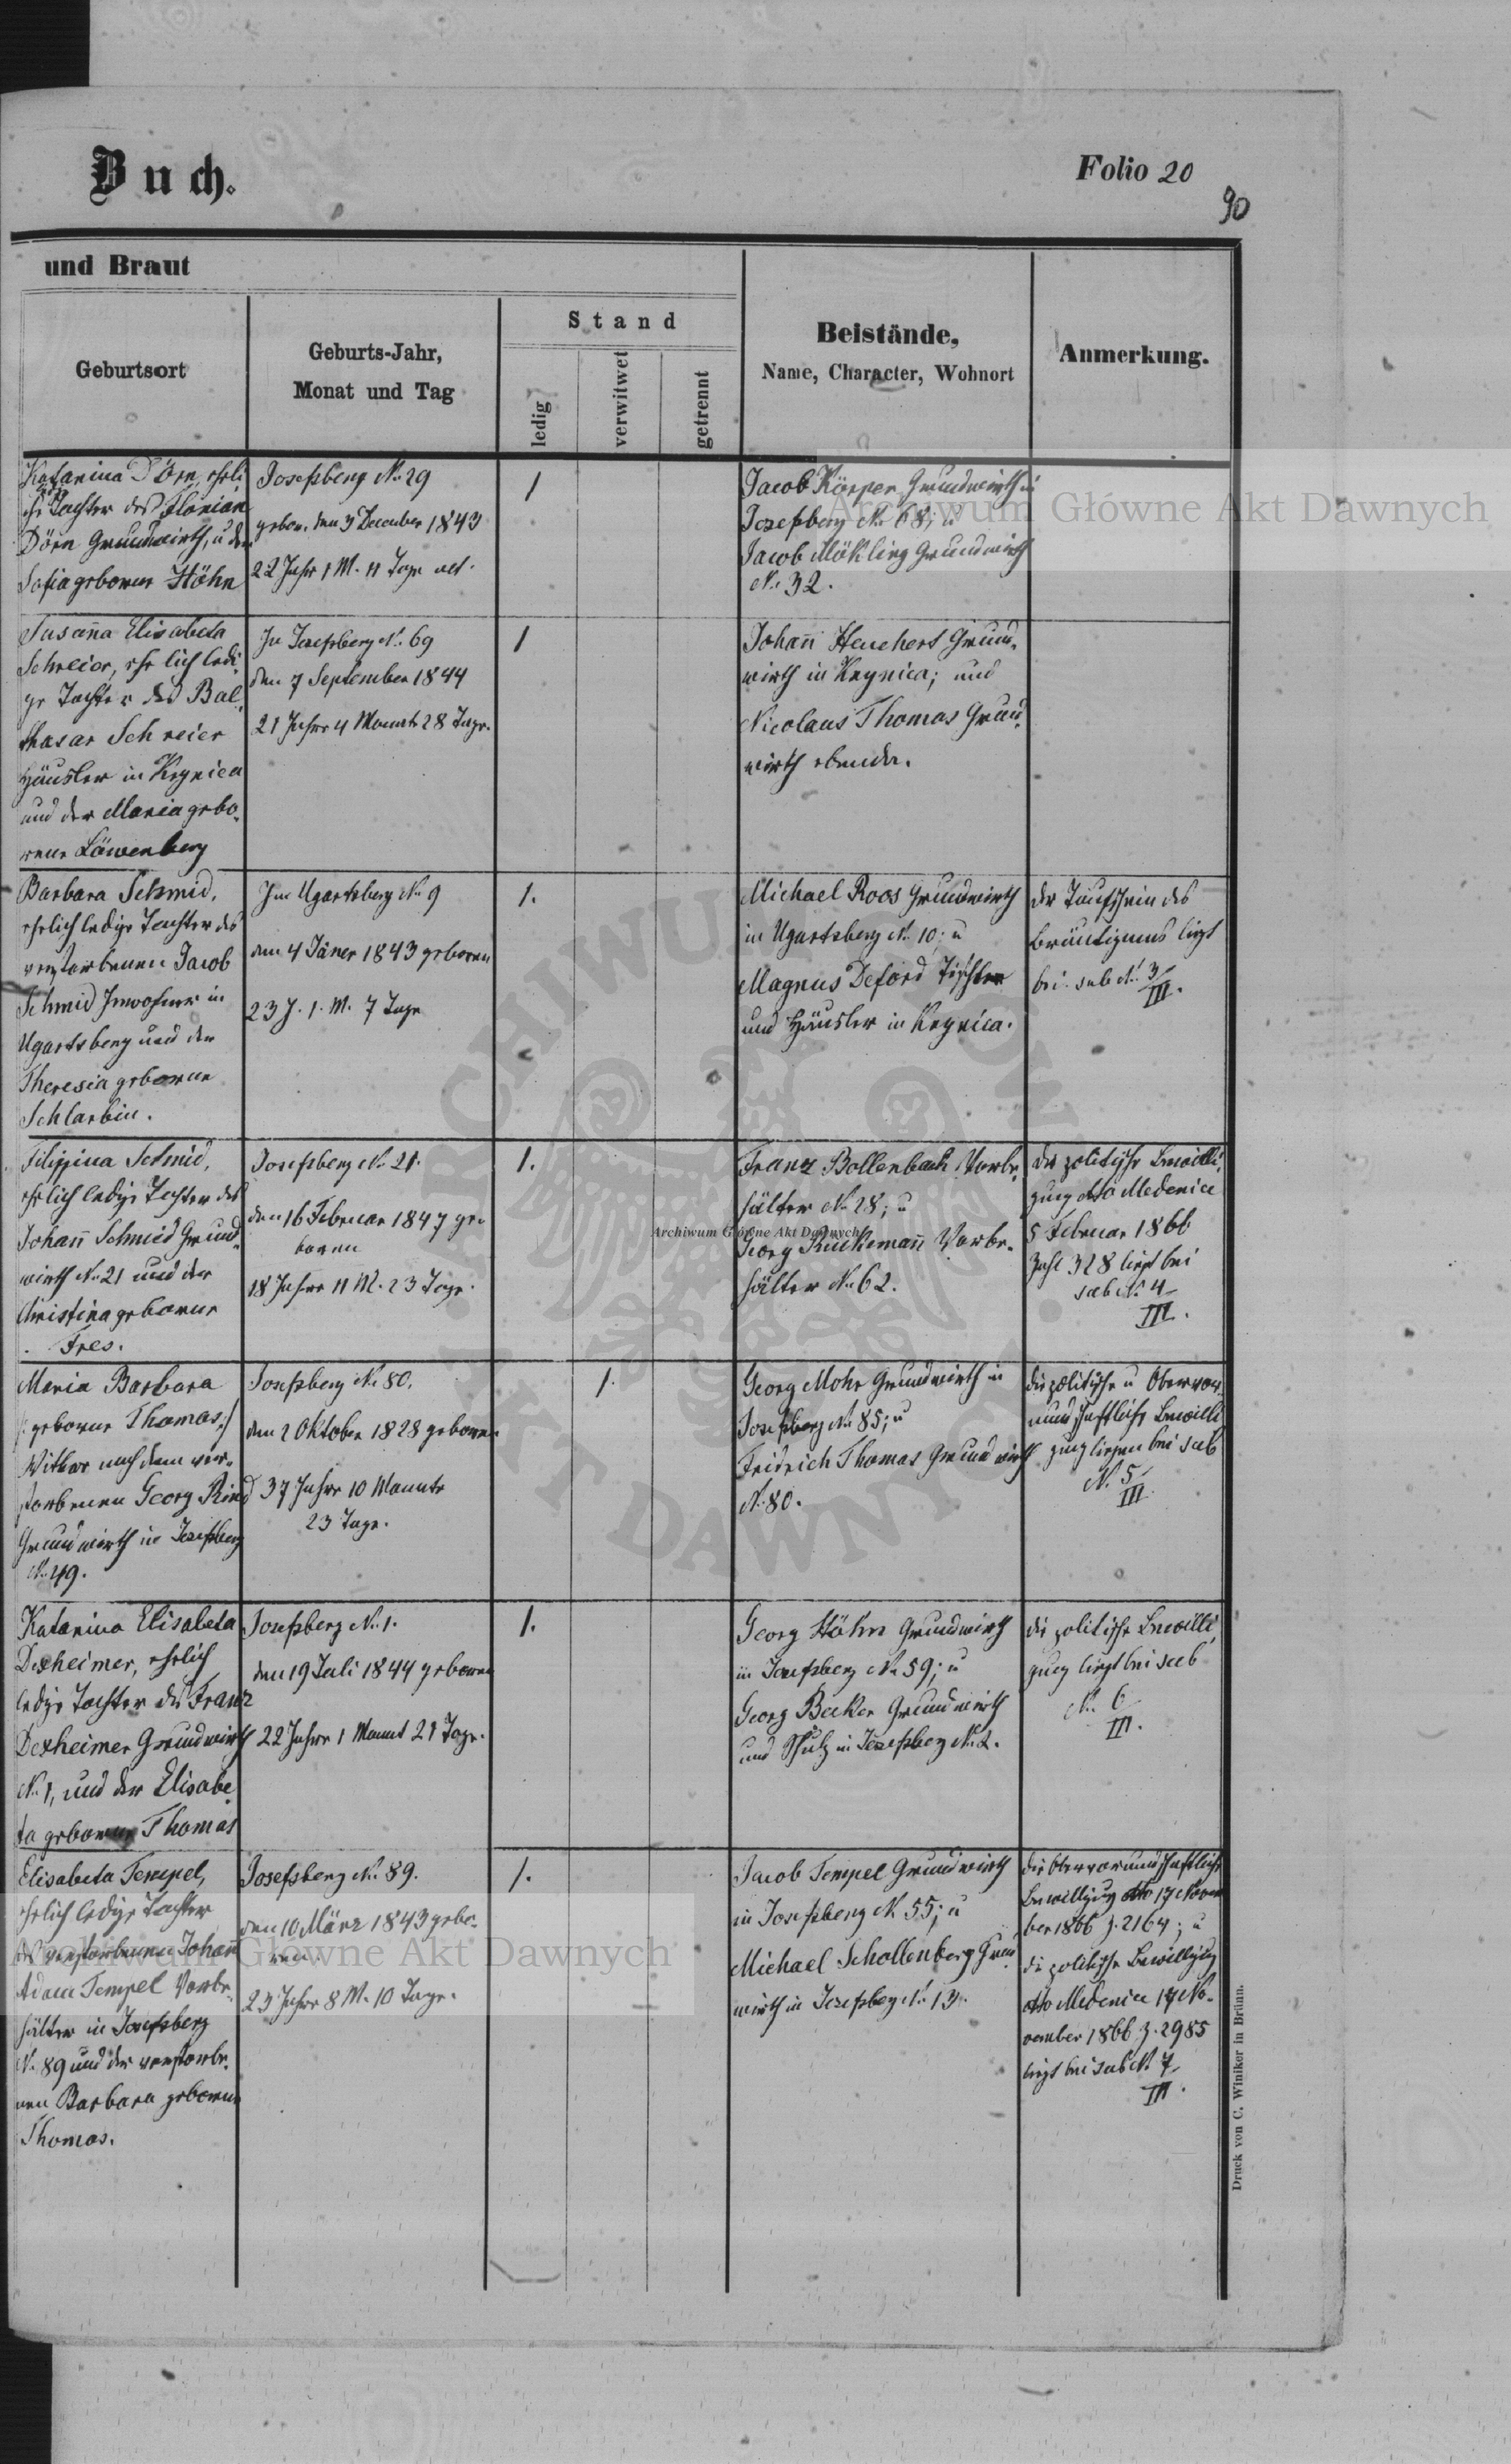 Buch.
Folio 20
90
und Braut
Geburtsort
Geburts-Jahr,
Monat und Tag
Stand
ledig
verwitwet
getrennt
Beistände,
Name, Character, Wohnort
Anmerkung.
Katarina Dörn, ehrli
che Tochter des Florian
Dörn Grundwirth, u der
Sofia geborene Höhn
Josefsberg No 29
gebor. den 3 December 1843
22 Jahr 1 M. 11 Tage alt.
1
Jacob Körper Grundwirth in
Josefsberg No 68; u
Jacob Mökling Grundwirth
No 32.
Susanna Elisabeta
Schreier, ehrlich ledi
ge Tochter des Bal
thasar Schreier
Häusler in Krynica
und der Maria gebo
rene Löwenberg
In Josefsberg No 69
den 7 September 1844
21 Jahre 4 Monate 28 Tage.
1
Johann Heuchert Grund
wirth in Krynica; und
Nicolaus Thomas Grund
wirth ebenda.
Barbara Schmid,
ehrlich ledige Tochter des
verstorbenen Jacob
Schmid Inwohner in
Ugartsberg und der
Theresia geborene
Schlarbin.
In Ugartsberg No 9
den 4 Jäner 1843 geboren
23 J. 1. M. 7 Tage
1.
Michael Roos Grundwirth
in Ugartsberg No 10; u
Magnus Deford Tischler
und Häusler in Krynica.
der Taufschein des
Bräutigams liegt
bei sub No 3/III.
Filippina Schmid,
ehrlich ledige Tochter des
Johann Schmid Grund
wirth No 21 und der
Christina geborene
Fres.
Josefsberg No 21.
den 16 Februar 1847 ge
boren
18 Jahre 11 M. 23 Tage.
1.
Franz Bollenbach Vorbe
hälter No 28; u
Georg Ruckemann Vorbe
hälter No 62.
die politische Bewilli
gung dtto Medenice
5 Februar 1866
Zahl 328 liegt bei
sub No 4/III.
Maria Barbara
/: geborene Thomas :/
Witwe nach dem ver
storbenen Georg Rind
Grundwirth in Josefsberg
No 49.
Josefsberg No 80.
den 2 Oktober 1828 geboren
37 Jahre 10 Monate
23 Tage.
1.
Georg Mohr Grundwirth in
Josefsberg No 85; u
Fridrich Thomas Grundwirth
No 80.
die politische u Obervor
mundschaftliche Bewilli
gung liegen bei sub
No 5/III
Katarina Elisabeta
Dexheimer, ehrlich
ledige Tochter des Franz
Dexheimer Grundwirth
No 1, und der Elisabe
ta geborene Thomas
Josefsberg No 1.
den 19 Juli 1844 geboren
22 Jahre 1 Monat 21 Tage.
1.
Georg Höhn Grundwirth
in Josefsberg No 59; u
Georg Becker Grundwirth
und Schulz in Josefsberg No 2.
die politische Bewilli
gung liegt bei sub
No 6/III.
Elisabeta Tempel,
ehrlich ledige Tochter
des verstorbenen Johann
Adam Tempel Vorbe
hälter in Josefsberg
No 89 und der verstorbe
nen Barbara geborene
Thomas.
Josefsberg No 89.
den 10 März 1843 gebo
ren.
23 Jahre 8 M. 10 Tage.
1.
Jacob Tempel Grundwirth
in Josefsberg No 55; u
Michael Schollenberg Grund
wirth in Josefsberg No 13.
die Obervormundschaftliche
Bewilligung dtto 17 Novem
ber 1866 Z. 2164; u
die politische Bewilligung
dtto Medenice 17 No
vember 1866 Z. 2985
liegt bei sub No 7/III.
Druck von C. Winiker in Brünn.
Archiwum Główne Akt Dawnych
Archiwum Główne Akt Dawnych
Archiwum Główne Akt Dawnych
ARCHIWUM GŁÓWNE AKT DAWNYCH